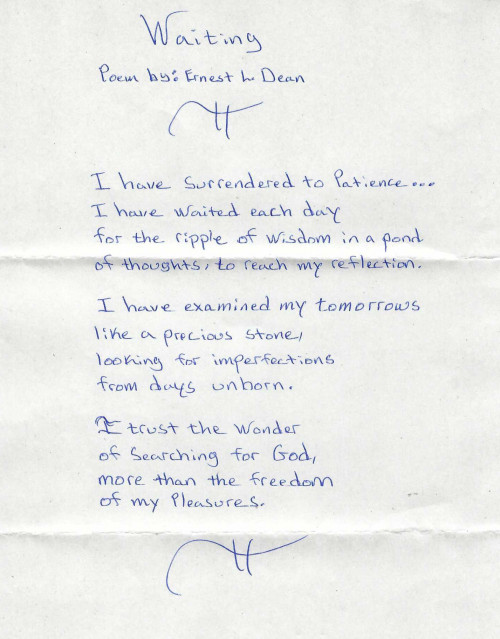 Waiting
Poem by: Ernest L Dean
I have Surrendered to Patience...
I have Waited each day
for the ripple of Wisdom in a pond
of thoughts, to reach my reflection.
I have examined my tomorrows
like a precious stone,
looking for imperfections
from days unborn.
I trust the Wonder
of Searching for God,
more than the freedom
of my Pleasures.